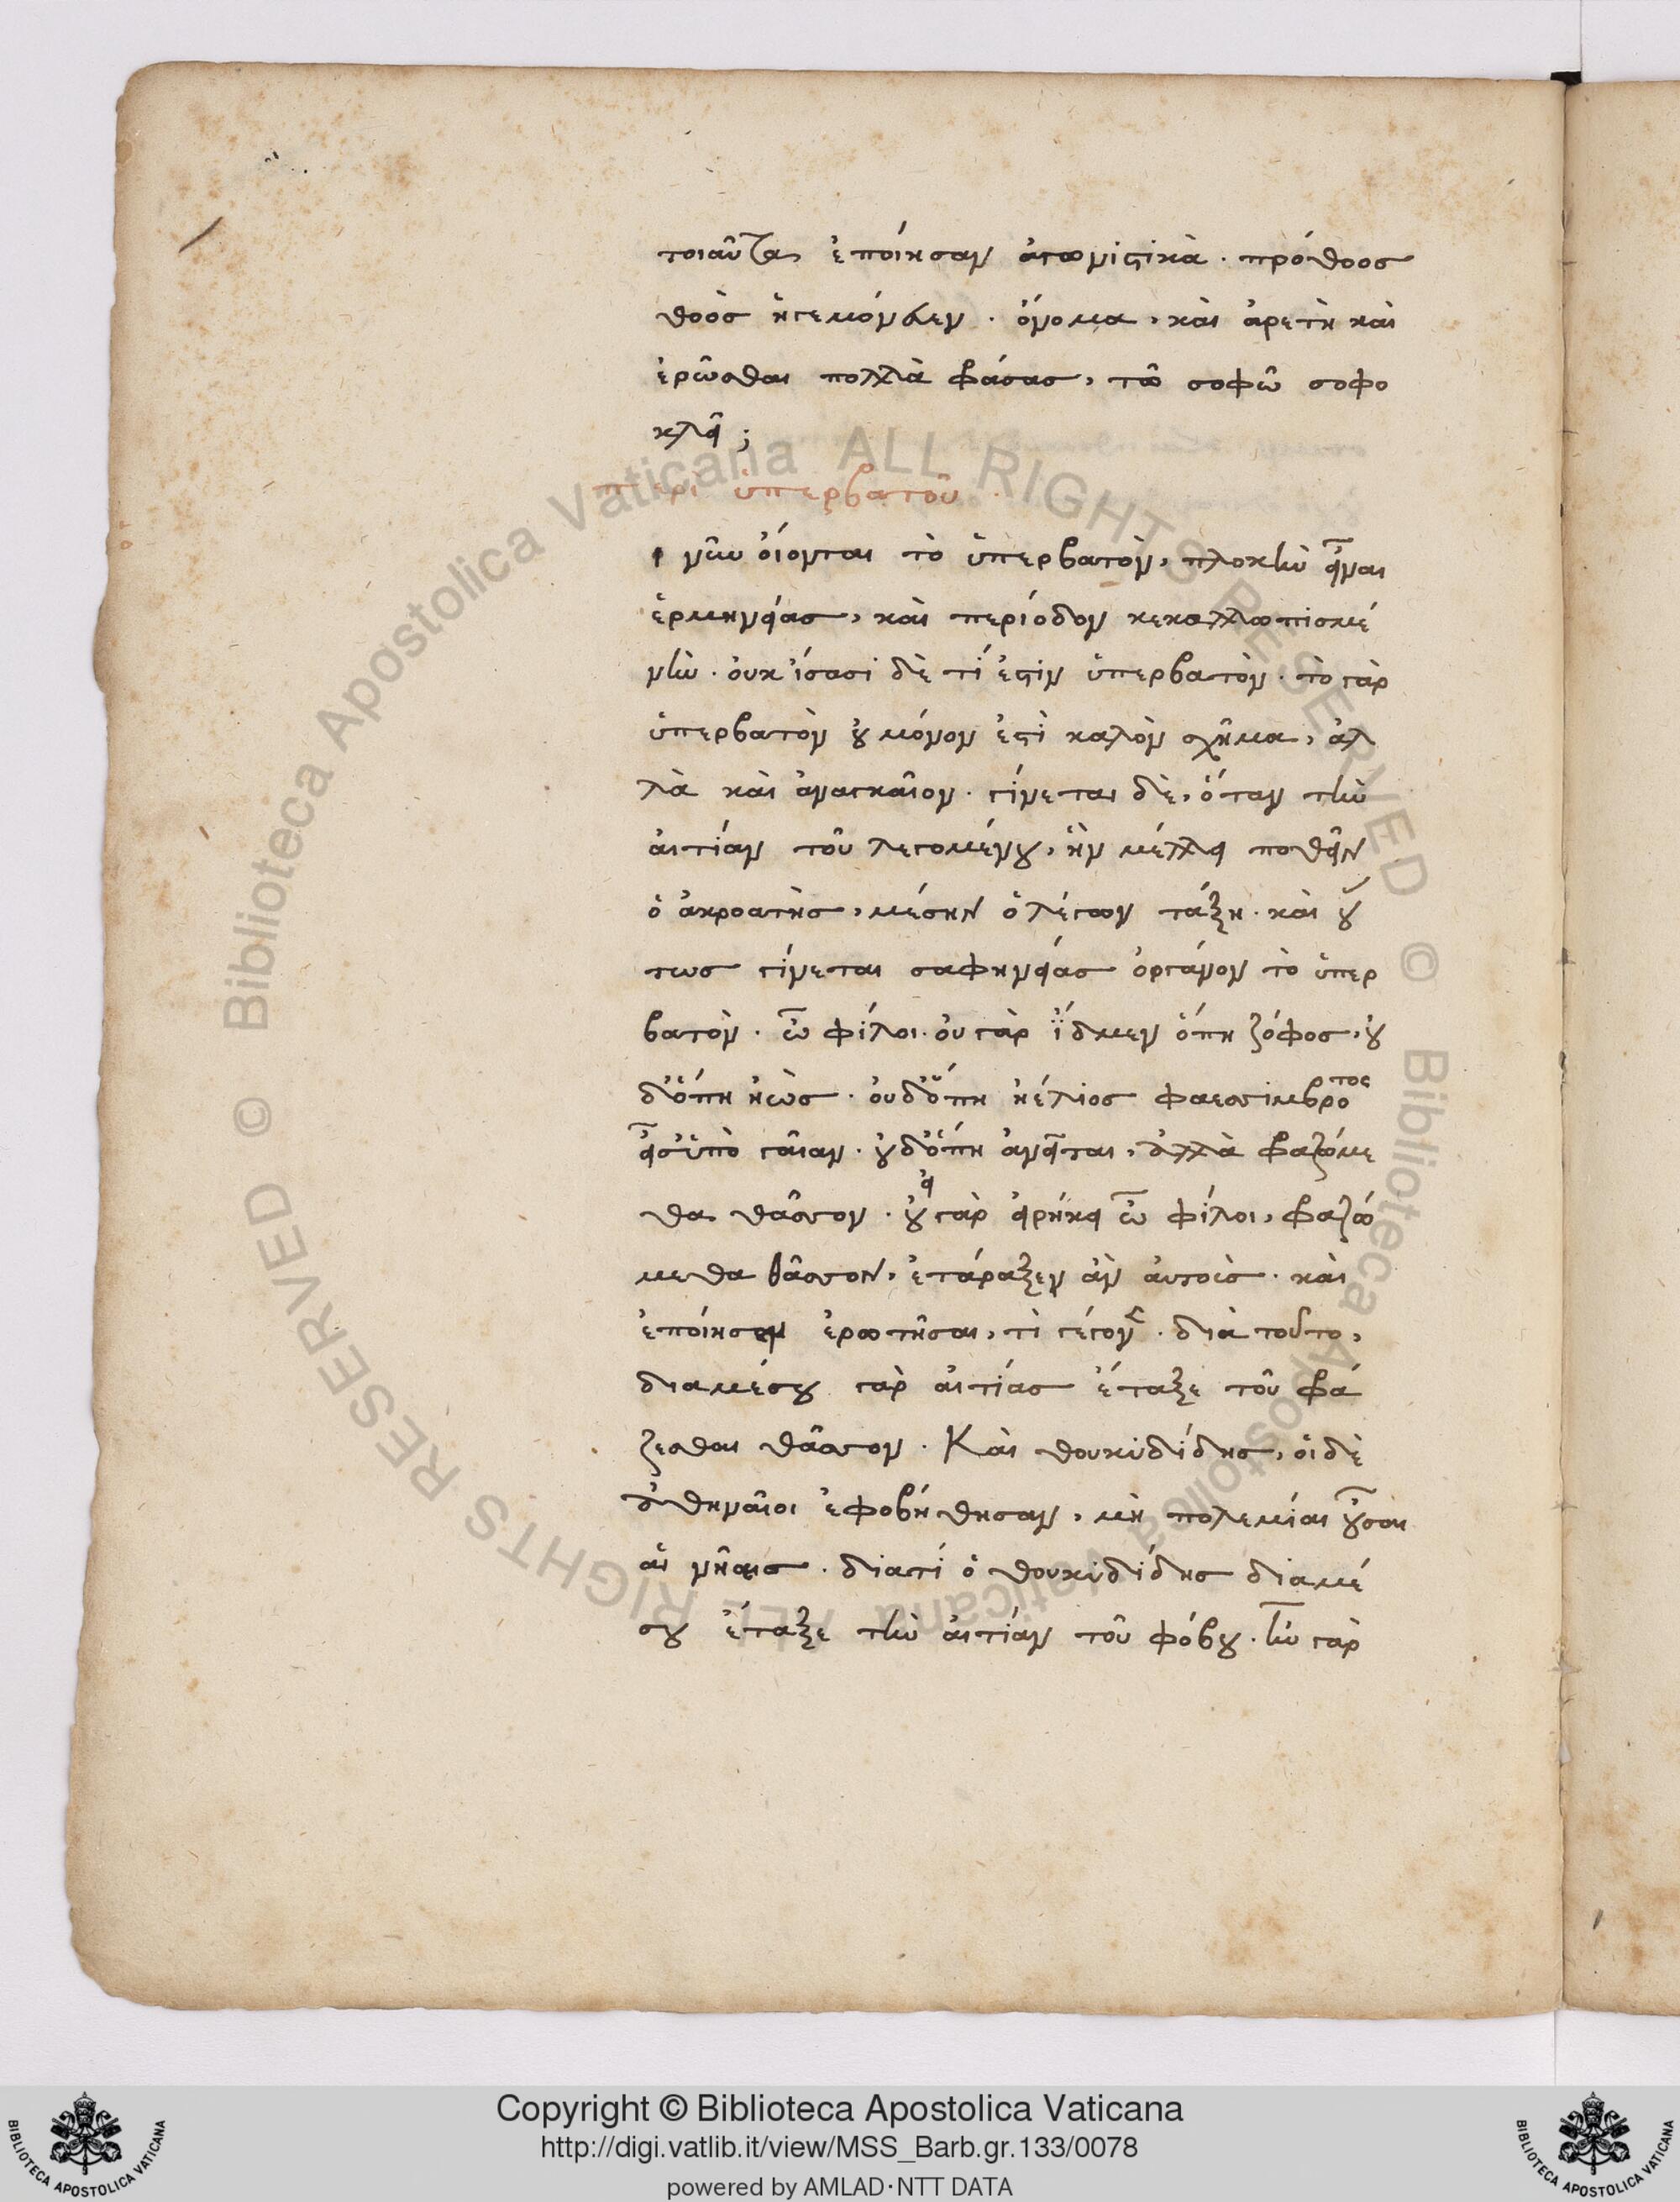 τοιαῦτα, ἐποίησαν ἀγωνιστικὰ. πρόθοος
θοὸς ἡγεμόνευεν. ὄνομα, καὶ ἀρετὴ καὶ
ἐρῶσθαι πολλὰ φράσας, τῶ σοφῶ σοφο
κλεῖ;
περὶ ὑπερβατοῦ.
ι νῦν οἴονται τὸ ὑπερβατὸν, πλοκὴν εἶναι
ἑρμηνείας, καὶ περίοδον κεκαλλωπισμέ
νην. οὐκ ἴσασι δὲ τί ἐστιν ὑπερβατὸν. τὸ γὰρ
ὑπερβατὸν οὐ μόνον ἐστὶ καλὸν σχῆμα, ἀλ
λὰ καὶ ἀναγκαῖον. γίνεται δὲ, ὅταν τὴν
αἰτίαν τοῦ λεγομένου, ἣν μέλλει ποθεῖν
ὁ ἀκροατὴς, μέσην ὁ λέγων τάξη. καὶ οὕ
τως γίνεται σαφηνείας ὄργανον τὸ ὑπερ
βατὸν. ὦ φίλοι. οὐ γὰρ ἴδμεν ὅπη ζόφος, οὐ
δ' ὅπη ἠὼς. οὐδ' ὅπη ἠέλιος φαεσίμβροτος
εἶσ' ὑπὸ γαῖαν. οὐδ' ὅπη ἀνεῖται, ἀλλὰ φραζώμε
θα θᾶσσον. οὐ εἰ γὰρ εἰρήκει ὦ φίλοι, φραζώ
μεθα θᾶσσον, ἐτάραξεν ἂν αὐτοὶς. καὶ
ἐποίησεν ἐρωτῆσαι, τὶ γέγονε. διὰ τοῦτο,
διαμέσου γὰρ αἰτίας ἔταξε τοῦ φρά
ζεσθαι θᾶσσον. Καὶ θουκυδίδης, οἱ δὲ
ἀθηναῖοι ἐφοβήθησαν, μὴ πολεμίαι οὖσαι
αἱ νῆες. διατί ὁ θουκυδίδης διαμέ
σου ἔταξε τὴν αἰτίαν τοῦ φόβου. ἦν γὰρ
© Biblioteca Apostolica Vaticana ALL RIGHTS RESERVED
© Biblioteca Apostolica Vaticana ALL RIGHTS RESERVED
Copyright © Biblioteca Apostolica Vaticana
http://digi.vatlib.it/view/MSS_Barb.gr.133/0078
powered by AMLAD·NTT DATA
BIBLIOTECA APOSTOLICA VATICANA
BIBLIOTECA APOSTOLICA VATICANA